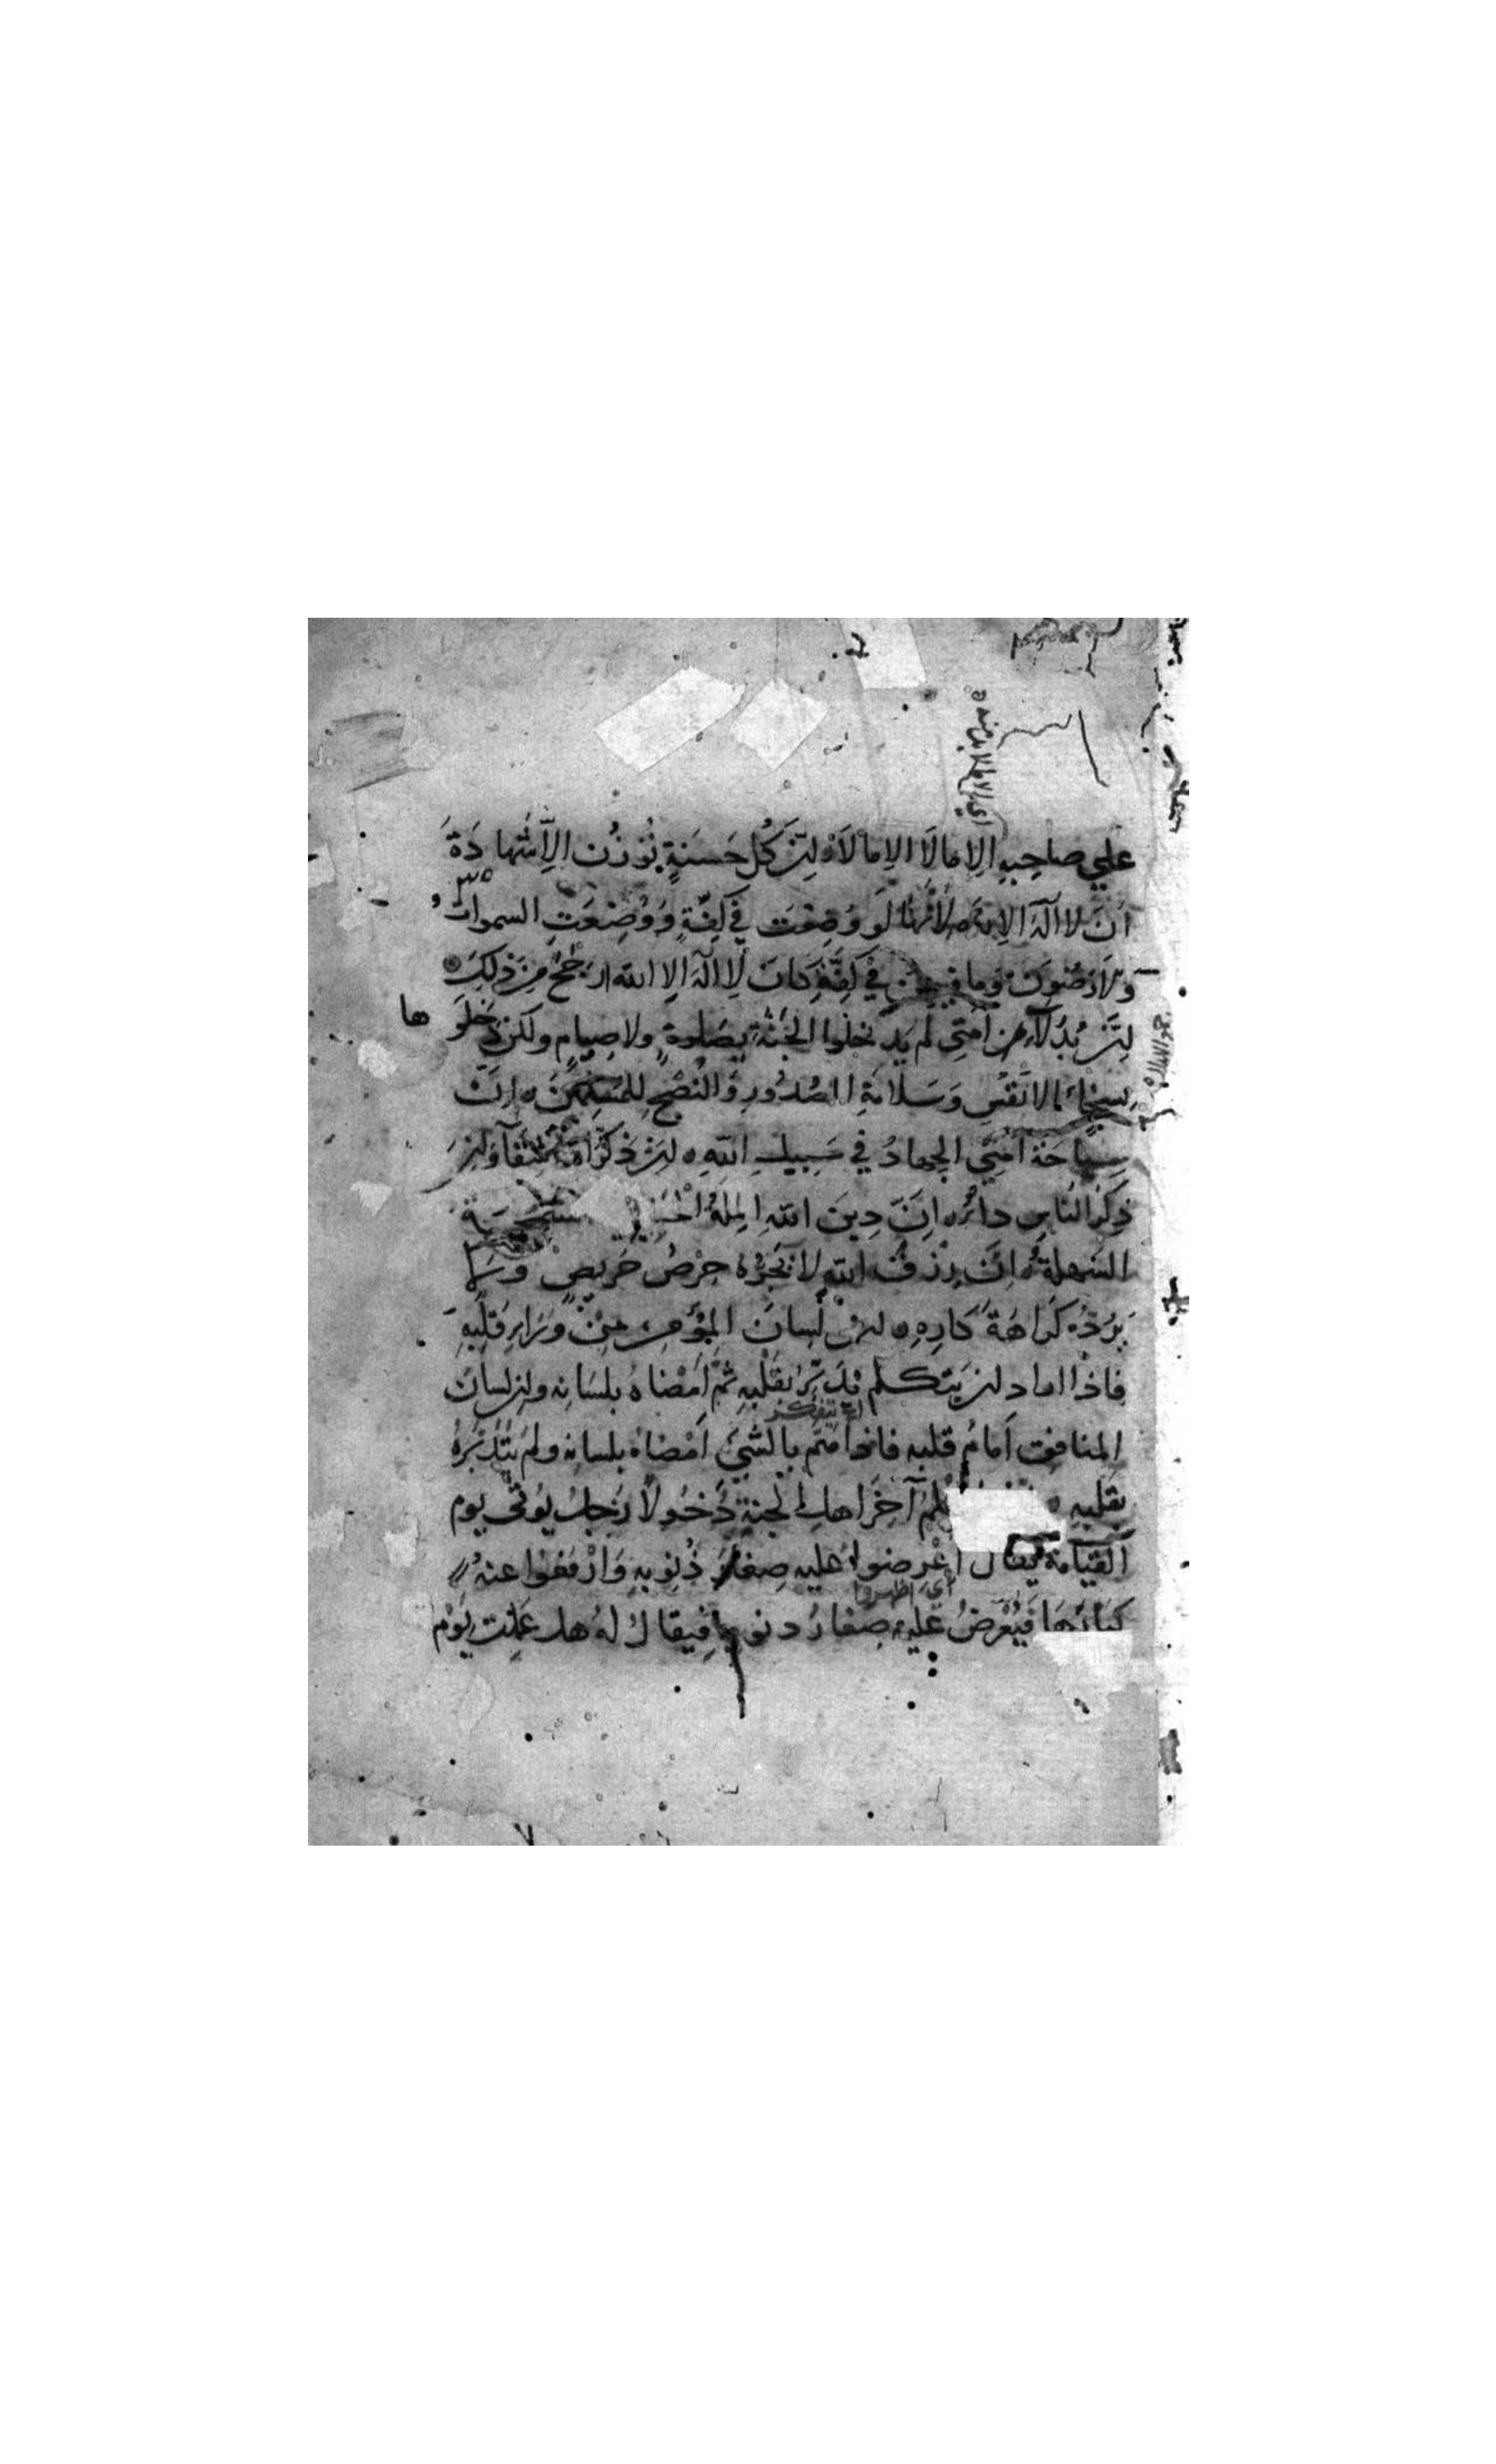 علي صاحبهِ الا مالا الا مالا ه اِنّ كُل حَسَنةٍ تُوْزَن الا شها دَةَ
أنَ لا اله الا الله لأنها لَو وُضِعَت في كِفّةٍ وَوُضِعَتِ السموات
والارضون وما فيهن في كَفّة كانت لا اله الا الله ارجَحُ من ذلِكَ
اِنّ بُدَلآءَ من اُمتي لم يَدخلوا الجنّة بصلوةٍ ولا صيامٍ ولكن دخلو ها
بسخاء الانفُسِ وَسَلامَةِ الصُدُورِ وَالنُصْحِ للمسلمين ه اِنّ
سِياحَة اُمتي الجِهادُ في سَبِيلِ اللهِ ه اِنّ ذكر الله شِفآ واِنّ
ذِكرَ الناس داءٌ ه اِنَّ دِينَ اللهِ المِلةُ السمحة
السَهلةُ ه اِنَّ رِزقَ اللهِ لا يَجُرُّهُ حِرْصُ حَرِيصٍ وَلا
يَرُدّهُ كَراهَةُ كارِهٍ ه اِنّ لِسانَ المُؤمِن مِنْ وَرَاءِ قَلبِهِ
فاذا اراد ان يَتكلم تدَبّرَ بقلبِهِ ثمَّ اَمْضاهُ بلسانِه واِنّ لسانَ
اي تتفكر
المنافق اَمامَ قلبه فاذا هَمّ بالشَيْ اَمْضاهُ بلسانِه ولم يتَدَبّرهُ
بقلبه ه آخِرَ اهل الجنةِ دُخُولًا رَجلٌ يُوتى يوم
القِيامَة فيقال اعْرضوا عليه صِغارَ ذُنوبهِ وَارْفعُوا عنهُ
اي اظهروا
كبارَها فَيُعْرَضُ عليهِ صِغارُ دنوبها فيقال لهُ هل عَمِلتَ يَوْم